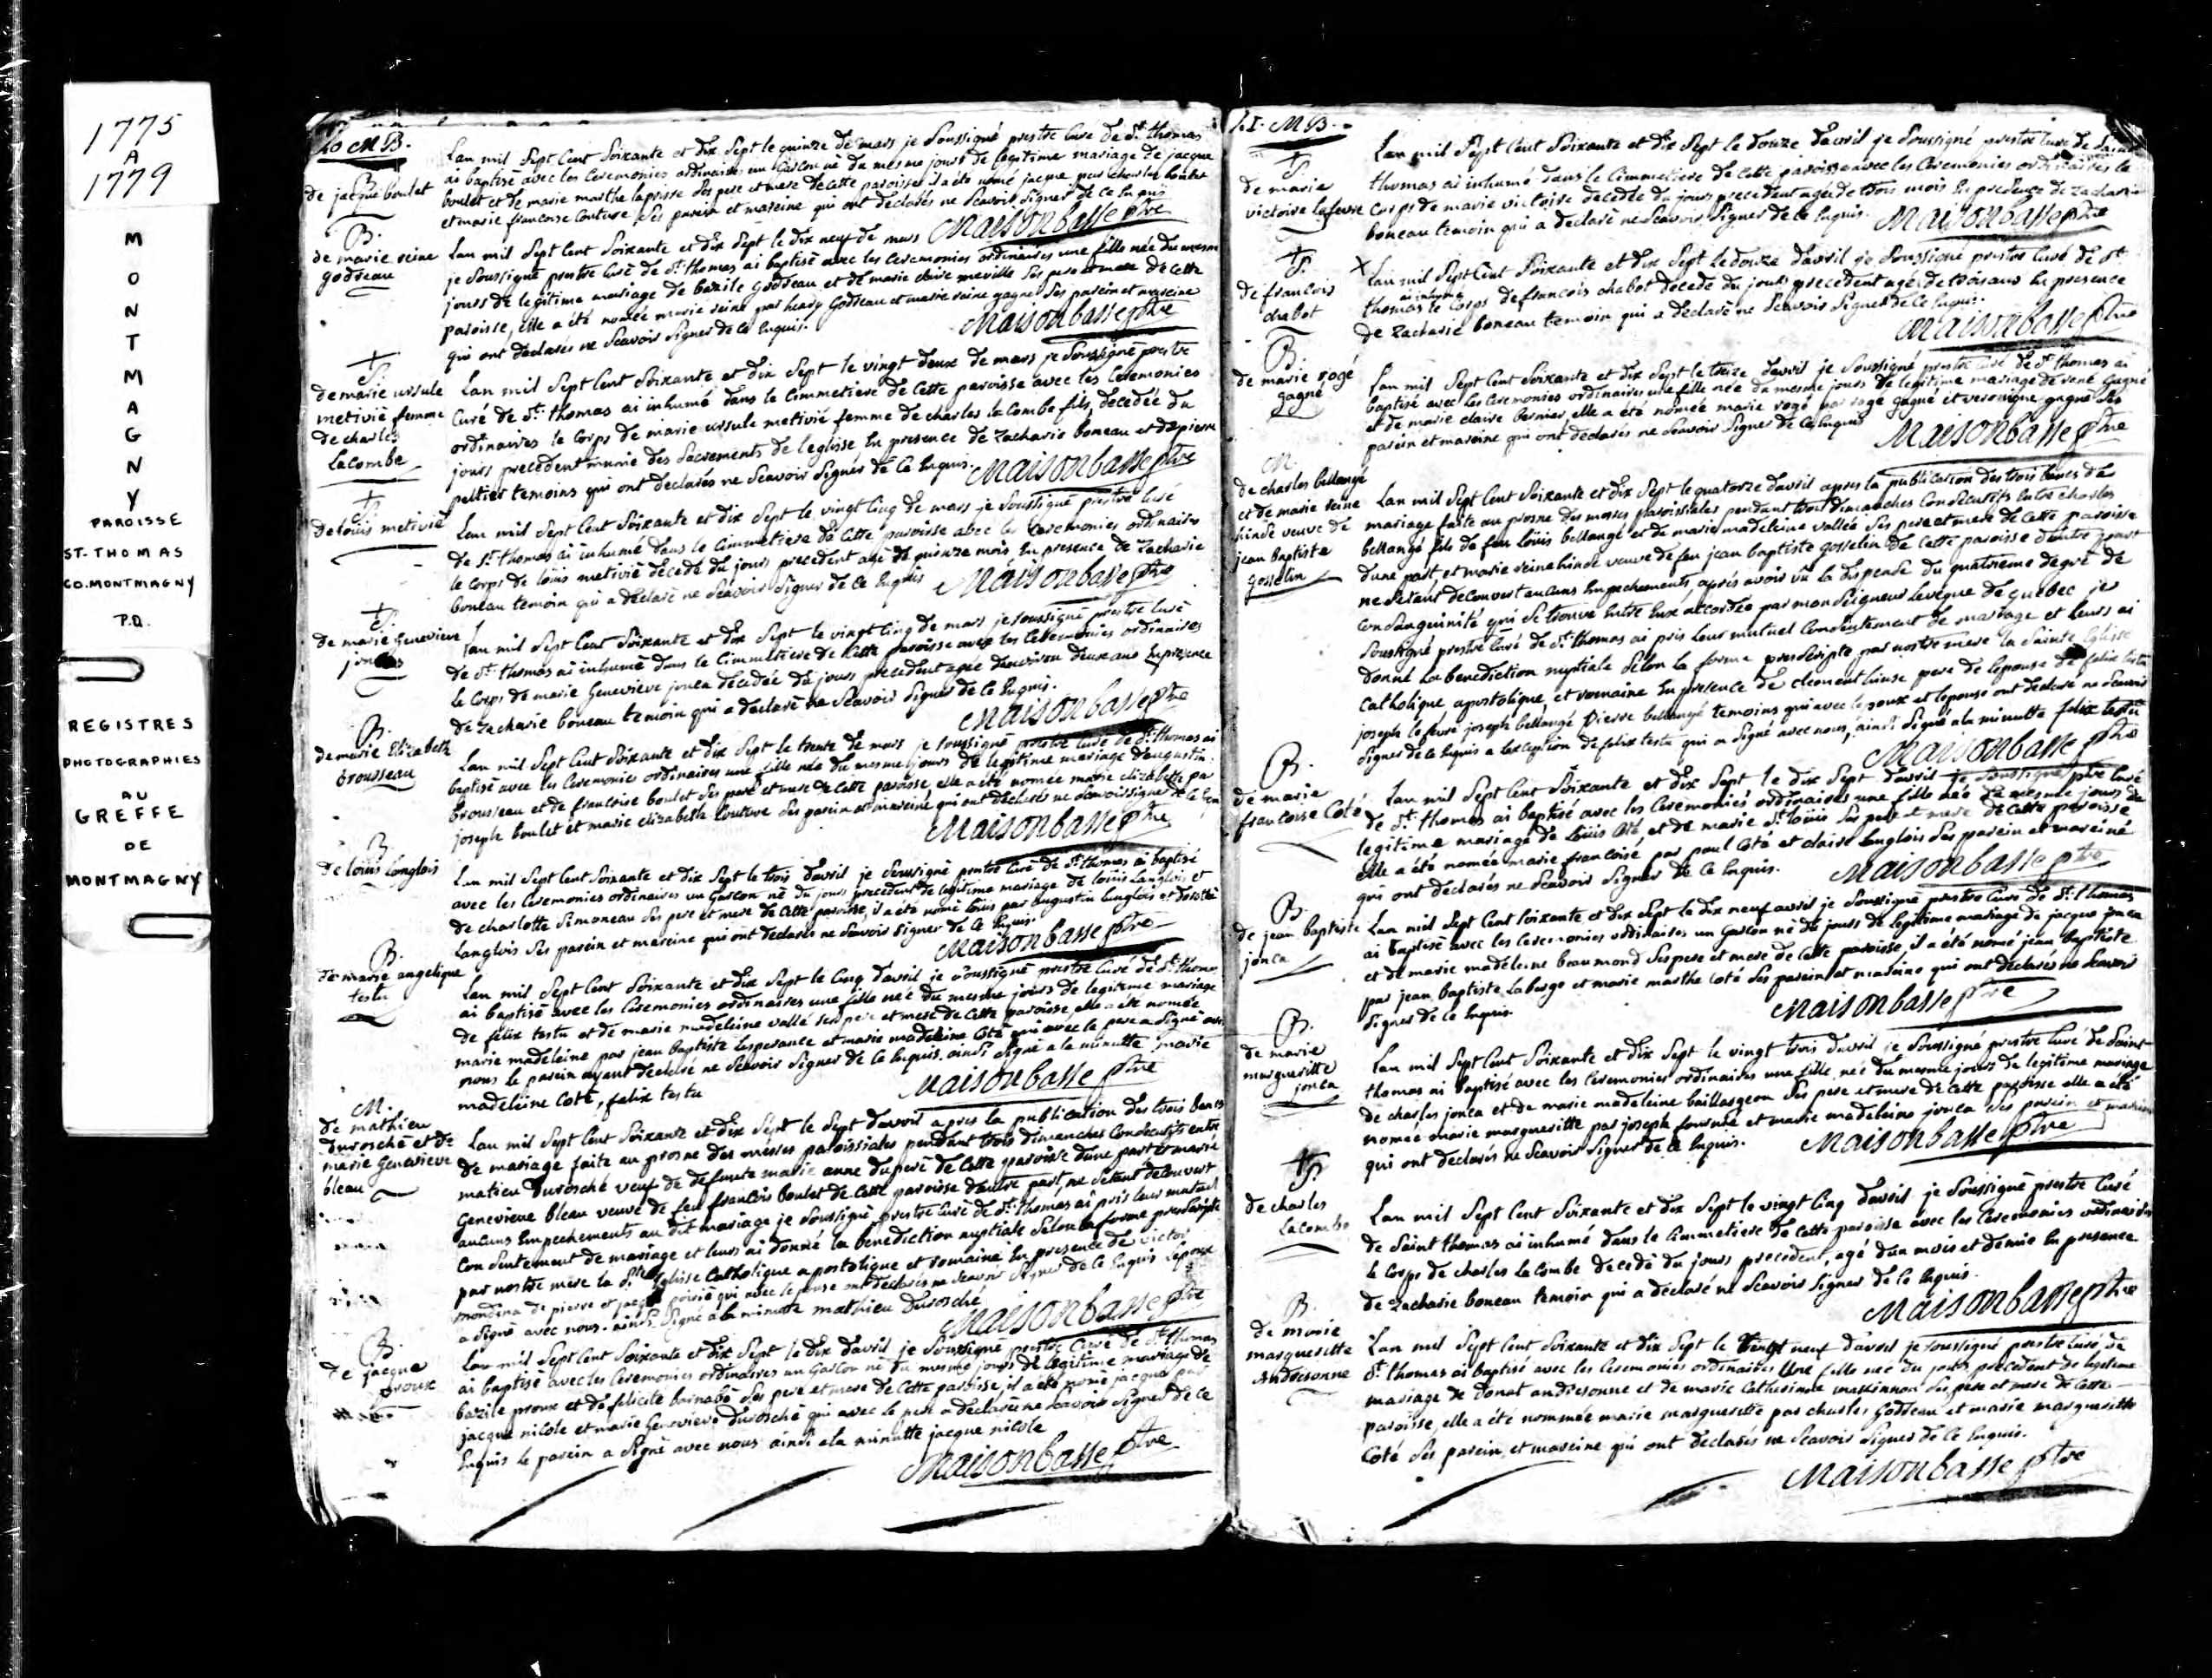 1775
A
1779
MONTMAGNY
PAROISSE
ST-THOMAS
CO.MONTMAGNY
P.Q.
REGISTRES
PHOTOGRAPHIES
AU
GREFFE
DE
MONTMAGNY
20 MB.
B.
de jacque boulet
Lan mil Sept Cent Soixante et dix Sept le quinze de mars je Soussigné prestre Curé de St. thomas
ai baptisé avec les Ceremonies ordinaires un Garcon né du mesme jours de legitime mariage de jacque
boulet et de marie marthe laprisse Ses pere et mere de Cette paroisse, il a été nomé jacque par Charles boulet
et marie francoise Couture Ses parein et mareine qui ont declarés ne Scavoir Signer de Ce Enquis
Maisonbasse ptre
B.
de marie reine
godreau
Lan mil Sept Cent Soixante et dix Sept le dix neuf de mars
je Soussigné prestre Curé de St. thomas ai baptisé avec les Ceremonies ordinaires une fille née du mesme
jours de legitime mariage de bazile Godreau et de marie claire Ses pere et mere de Cette
paroisse, elle a été nomée marie reine par Godreau et marie reine gagné Ses parein et mareine
qui ont declarés ne Scavoir Signer de Ce Enquis.
Maisonbasse ptre
S.
de marie ursule
metivié femme
de charles
LaCombe
Lan mil Sept Cent Soixante et dix Sept le vingt deux de mars je Soussigné prestre
Curé de St. thomas ai inhumé dans le Cimmetiere de Cette paroisse avec les Ceremonies
ordinaires le Corps de marie ursule metivié femme de charles la Combe fils, decedée du
jours precedent munie des Sacrements de leglisse En presence de Zacharie boneau et de pierre
peltier temoins qui ont declarés ne Scavoir Signer de Ce Enquis.
Maisonbasse ptre
S.
de louis metivié
Lan mil Sept Cent Soixante et dix Sept le vingt Cinq de mars je Soussigné prestre Curé
de St. thomas ai inhumé dans le Cimmetiere de Cette paroisse avec les Ceremonies ordinaires
le Corps de louis metivié decedé du jours precedent agé de quinze mois En presence de Zacharie
boneau temoin qui a declaré ne Scavoir Signer de Ce Enquis
Maisonbasse ptre
S.
de marie Genevieve
Lan mil Sept Cent Soixante et dix Sept le vingt Cinq de mars je Soussigné prestre Curé
de St. thomas ai inhumé dans le Cimmetiere de Cette paroisse avec les Ceremonies ordinaires
le Corps de marie Genevieve jonca decedée du jours precedent agée denviron deux ans En presence
de Zacharie boneau temoin qui a declaré ne Scavoir Signer de Ce Enquis.
Maisonbasse ptre
B.
de marie Elizabeth
brousseau
Lan mil Sept Cent Soixante et dix Sept le trente de mars je Soussigné prestre Curé de St. thomas ai
baptisé avec les Ceremonies ordinaires une fille née du mesme jours de legitime mariage daugustin
brousseau et de francoise boulet Ses pere et mere de Cette paroisse, elle a été nomée marie elizabette par
joseph boulet et marie elizabeth Couture Ses parein et mareine qui ont declarés ne Scavoir Signer de Ce
Maisonbasse ptre
B.
de louis Langlois
Lan mil Sept Cent Soixante et dix Sept le trois davril je Soussigné prestre Curé de St. thomas ai baptisé
avec les Ceremonies ordinaires un Garcon né du jours precedent de legitime mariage de louis Langlois et
de charlotte Simoneau Ses pere et mere de Cette paroisse, il a été nomé louis par augustin Langlois et
Langlois Ses parein et mareine qui ont declarés ne Scavoir Signer de Ce Enquis.
Maisonbasse ptre
B.
de marie angelique
testu
Lan mil Sept Cent Soixante et dix Sept le Cinq davril je Soussigné prestre Curé de St. thomas
ai baptisé avec les Ceremonies ordinaires une fille née du mesme jours de legitime mariage
de felix testu et de marie madeleine vallé Ses pere et mere de Cette paroisse, elle a été nomée
marie madeleine par jean baptiste Lesperance et marie madeleine Coté qui avec le pere a Signé avec
nous le parein ayant declaré ne Scavoir Signer de Ce Enquis. ainsi Signé a la minutte marie
madeleine Coté, felix testu
Maisonbasse ptre
M.
de mathieu
durosché et de
marie Genevieve
bleau
Lan mil Sept Cent Soixante et dix Sept le Sept davril apres la publication des trois bancs
de mariage faite au prosne des messes paroissiales pendant trois dimanches Consecutifs entre
matieu durosché veuf de defunte marie anne duperé de Cette paroisse dune part et marie
Genevieve bleau veuve de feu francois boulet de Cette paroisse dautre part, ne Setant decouvert
aucuns Empechements au dit mariage je Soussigné prestre Curé de St. thomas ai pris leur mutuel
Consentement de mariage et leurs ai donné la benediction nuptiale Selon la forme prescripte
par nostre mere la Ste. Eglisse Catholique apostolique et romaine En presence de victor
mondina de pierre et jacque poirié qui avec lepouse ont declarés ne Scavoir Signer de Ce Enquis lepoux
a Signé avec nous. ainsi Signé a la minutte mathieu durosché
Maisonbasse ptre
B.
de jacque
proux
Lan mil Sept Cent Soixante et dix Sept le dix davril je Soussigné prestre Curé de St. thomas
ai baptisé avec les Ceremonies ordinaires un Garcon né du mesme jours de legitime mariage de
bazile proux et de felicité barnabé Ses pere et mere de Cette paroisse, il a été nomé jacque par
jacque nicole et marie Genevieve durosché qui avec le pere a declarée ne Scavoir Signer de Ce
Enquis le parein a Signé avec nous ainsi a la minutte jacque nicole
Maisonbasse ptre
21. MB.
S.
de marie
victoire lefevre
Lan mil Sept Cent Soixante et dix Sept le douze davril je Soussigné prestre Curé de Saint
thomas ai inhumé dans le Cimmetiere de Cette paroisse avec les Ceremonies ordinaires le
Corps de marie victoire decedée du jours precedent agée de trois mois En presence de Zacharie
boneau temoin qui a declaré ne Scavoir Signer de Ce Enquis.
Maisonbasse ptre
S.
de francois
chabot
X Lan mil Sept Cent Soixante et dix Sept le douze davril je Soussigné prestre Curé de St.
ai inhumé
thomas le Corps de francois chabot decedé du jours precedent agé de trois ans En presence
de Zacharie boneau temoin qui a declaré ne Scavoir Signer de Ce Enquis.
Maisonbasse ptre
B.
de marie rogé
gagné
Lan mil Sept Cent Soixante et dix Sept le treize davril je Soussigné prestre Curé de St. thomas ai
baptisé avec les Ceremonies ordinaires une fille née du mesme jours de legitime mariage de rené Gagné
et de marie claire bernier, elle a été nomée marie rogé par rogé gagné et veronique gagné Ses
parein et mareine qui ont declarés ne Scavoir Signer de Ce Enquis
Maisonbasse ptre
M.
de charles bellangé
et de marie reine
hinse veuve de
jean baptiste
gosselin
Lan mil Sept Cent Soixante et dix Sept le quatorze davril apres la publication des trois bancs de
mariage faite au prosne des messes paroissiales pendant trois dimanches Consecutifs entre charles
bellangé fils de feu Loüis bellangé et de marie madeleine vallée Ses pere et mere de Cette paroisse
dune part, et marie reine hinse veuve de feu jean baptiste gosselin de Cette paroisse dautre part
ne Setant decouvert aucuns Empechements, aprés avoir vû la dispense du quatrieme degré de
Consanguinité qui Se trouve Entre Eux accordée par monseigneur Leveque de quebec je
Soussigné prestre Curé de St. thomas ai pris leur mutuel Consentement de mariage et leurs ai
donné la benediction nuptiale Selon la forme prescripte par nostre mere la Sainte Eglisse
Catholique apostolique, et romaine En presence de clement hinse pere de lepouse de felix testu
joseph lefevre joseph bellangé Pierre bellangé temoins qui avec lepoux et lepouse ont declaré ne Scavoir
Signer de Ce Enquis a lexception de felix testu qui a Signé avec nous, ainsi Signé a la minutte felix testu
Maisonbasse ptre
B.
de marie
francoise Coté
Lan mil Sept Cent Soixante et dix Sept le dix Sept davril je Soussigné ptre Curé
de St. thomas ai baptisé avec les Ceremonies ordinaires une fille née du mesme jours de
legitime mariage de Loüis Coté et de marie St. loüis Ses pere et mere de Cette paroisse
elle a été nomée marie francoise par paul Coté et claire Langlois Ses parein et mareine
qui ont declarés ne Scavoir Signer de Ce Enquis.
Maisonbasse ptre
B.
de jean baptiste
jonca
Lan mil Sept Cent Soixante et dix Sept le dix neuf avril je Soussigné prestre Curé de St. thomas
ai baptisé avec les Ceremonies ordinaires un Garcon né du jours de legitime mariage de jacque jonca
et de marie madeleine beaumond Ses pere et mere de Cette paroisse, il a été nomé jean baptiste
par jean baptiste Laberge et marie marthe Coté Ses parein et mareine qui ont declarés ne Scavoir
Signer de Ce Enquis.
Maisonbasse ptre
B.
de marie
margueritte
jonca
Lan mil Sept Cent Soixante et dix Sept le vingt trois davril je Soussigné prestre Curé de Saint
thomas ai baptisé avec les Ceremonies ordinaires une fille née du mesme jours de legitime mariage
de charles jonca et de marie madeleine baillargeon Ses pere et mere de Cette paroisse elle a été
nomée marie margueritte par joseph fournié et marie madeleine jonca Ses parein et mareine
qui ont declarés ne Scavoir Signer de Ce Enquis.
Maisonbasse ptre
S.
de charles
LaCombe
Lan mil Sept Cent Soixante et dix Sept le vingt Cinq davril je Soussigné prestre Curé
de Saint thomas ai inhumé dans le Cimmetiere de Cette paroisse avec les Ceremonies ordinaires
le Corps de charles la Combe decedé du jours precedent, agé dun mois et demie En presence
de Zacharie boneau temoin qui a declaré ne Scavoir Signer de Ce Enquis.
Maisonbasse ptre
B.
de marie
margueritte
Andresonne
Lan mil Sept Cent Soixante et dix Sept le vingt neuf davril je Soussigné prestre Curé de
St. thomas ai baptisé avec les Ceremonies ordinaires Une fille née du jours precedent de legitime
mariage de donat andresonne et de marie Catherinne makinnon Ses pere et mere de Cette
paroisse, elle a été nommée marie margueritte par charles Godreau et marie margueritte
Coté Ses parein et mareine qui ont declarés ne Scavoir Signer de Ce Enquis.
Maisonbasse ptre